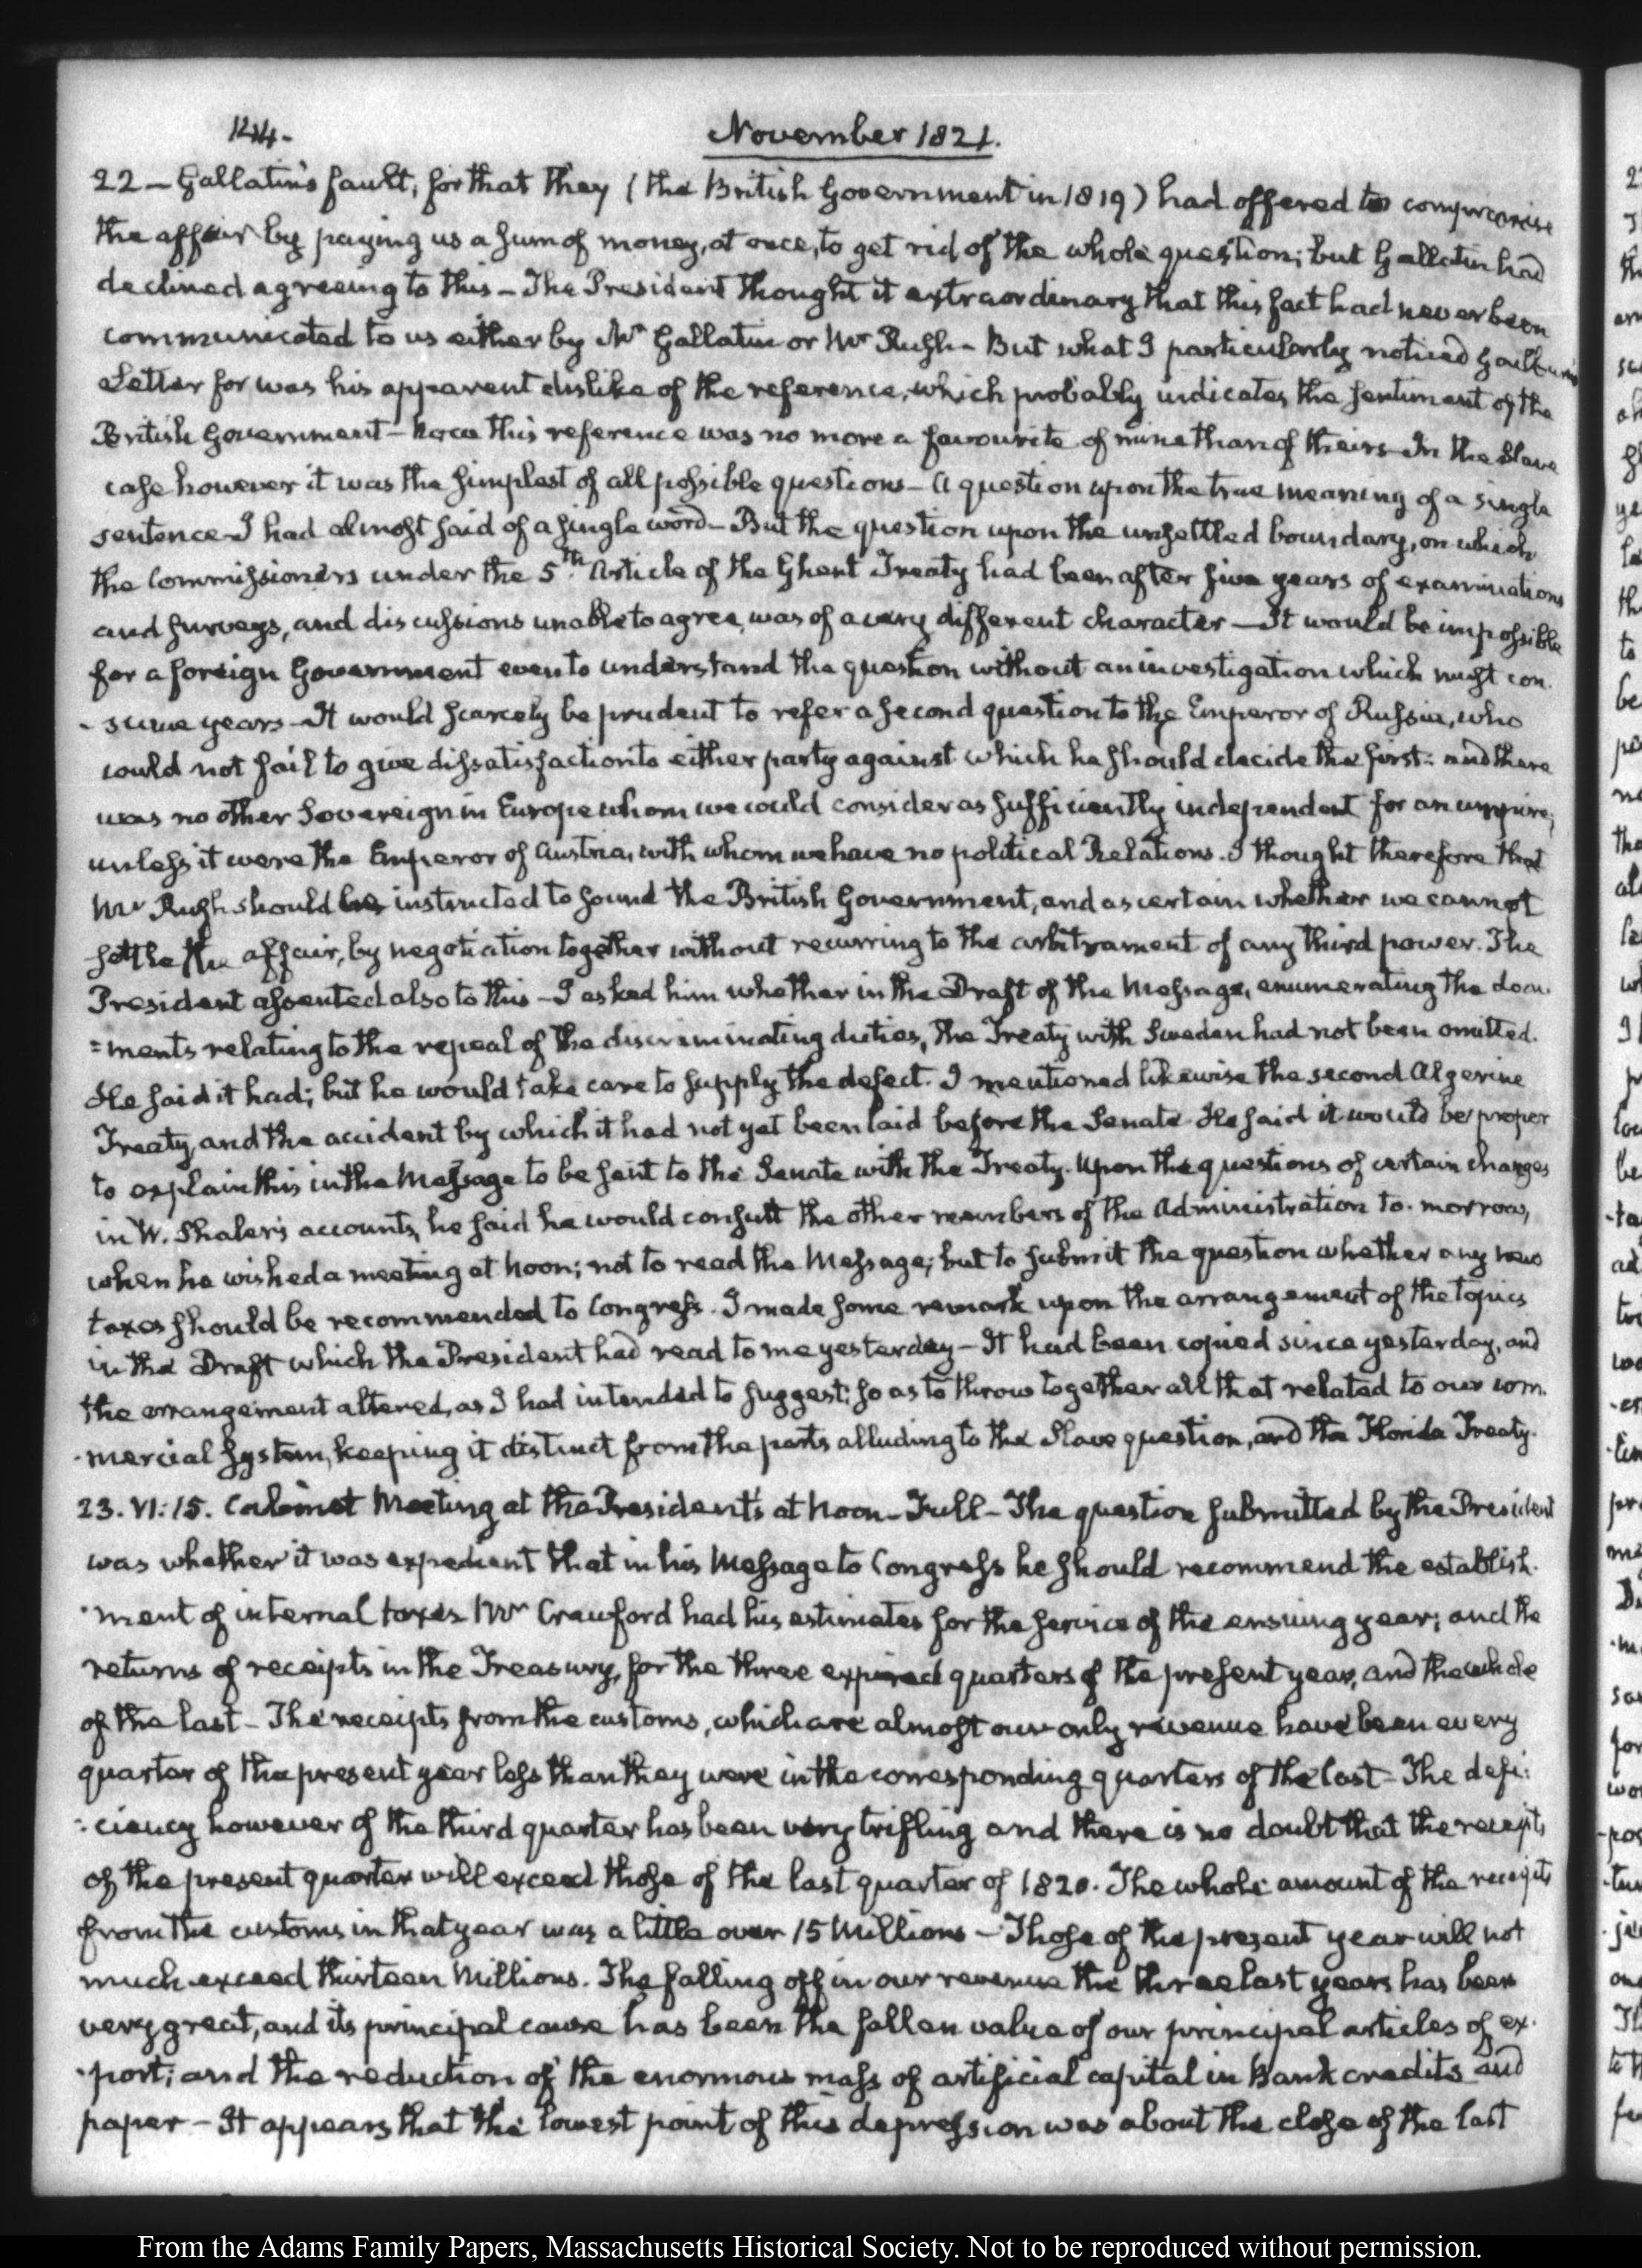 144.
November 1821.
22 — Gallatin's fault, for that they (the British Government in 1819) had offered to compromise
the affair by paying us a sum of money, at once, to get rid of the whole question; but Gallatin had
declined agreeing to this — The President thought it extraordinary that this fact had never been
communicated to us either by Mr Gallatin or Mr Rush — But what I particularly noticed Gallatin's
Letter for was his apparent dislike of the reference, which probably indicates the sentiment of the
British Government — Now this reference was no more a favourite of mine than of theirs — In the Slave
case however it was the simplest of all possible questions — A question upon the true meaning of a single
sentence — I had almost said of a single word — But the question upon the unsettled boundary, on which
the Commissioners under the 5th Article of the Ghent Treaty had been after five years of examinations
and surveys, and discussions unable to agree, was of a very different character — It would be impossible
for a foreign Government even to understand the question without an investigation which must con-
-sume years — It would scarcely be prudent to refer a second question to the Emperor of Russia, who
could not fail to give dissatisfaction to either party against which he should decide the first: and there
was no other Sovereign in Europe whom we could consider as sufficiently independent for an umpire;
unless it were the Emperor of Austria, with whom we have no political Relations. I thought therefore that
Mr Rush should be instructed to sound the British Government, and ascertain whether we cannot
settle the affair, by negotiation together without recurring to the arbitrament of any third power. The
President assented also to this — I asked him whether in the Draft of the Message, enumerating the docu-
=ments relating to the repeal of the discriminating duties, the Treaty with Sweden had not been omitted.
He said it had; but he would take care to supply the defect. I mentioned likewise the second Algerine
Treaty, and the accident by which it had not yet been laid before the Senate. He said it would be proper
to explain this in the Message to be sent to the Senate with the Treaty. Upon the questions of certain charges
in W. Shaler's accounts, he said he would consult the other members of the Administration to-morrow,
when he wished a meeting at Noon; not to read the Message; but to submit the question whether any new
taxes should be recommended to Congress. I made some remark upon the arrangement of the topics
in the Draft which the President had read to me yesterday — It had been copied since yesterday, and
the arrangement altered, as I had intended to suggest; so as to throw together all that related to our com-
-mercial System, keeping it distinct from the parts alluding to the Slave question, and the Florida Treaty.
23. VI:15. Cabinet Meeting at the President's at Noon — Full — The question submitted by the President
was whether it was expedient that in his Message to Congress he should recommend the establish-
-ment of internal taxes. Mr Crawford had his estimates for the service of the ensuing year; and the
returns of receipts in the Treasury, for the three expired quarters of the present year, and the whole
of the last — The receipts from the customs, which are almost our only revenue have been every
quarter of the present year less than they were in the corresponding quarters of the last — The defi:
:ciency however of the third quarter has been very trifling and there is no doubt that the receipts
of the present quarter will exceed those of the last quarter of 1820. The whole amount of the receipts
from the customs in that year was a little over 15 Millions — Those of the present year will not
much exceed thirteen Millions. The falling off in our revenue the three last years has been
very great, and its principal cause has been the fallen value of our principal articles of ex-
-port; and the reduction of the enormous mass of artificial capital in Bank credits and
paper — It appears that the lowest point of this depression was about the close of the last
From the Adams Family Papers, Massachusetts Historical Society. Not to be reproduced without permission.